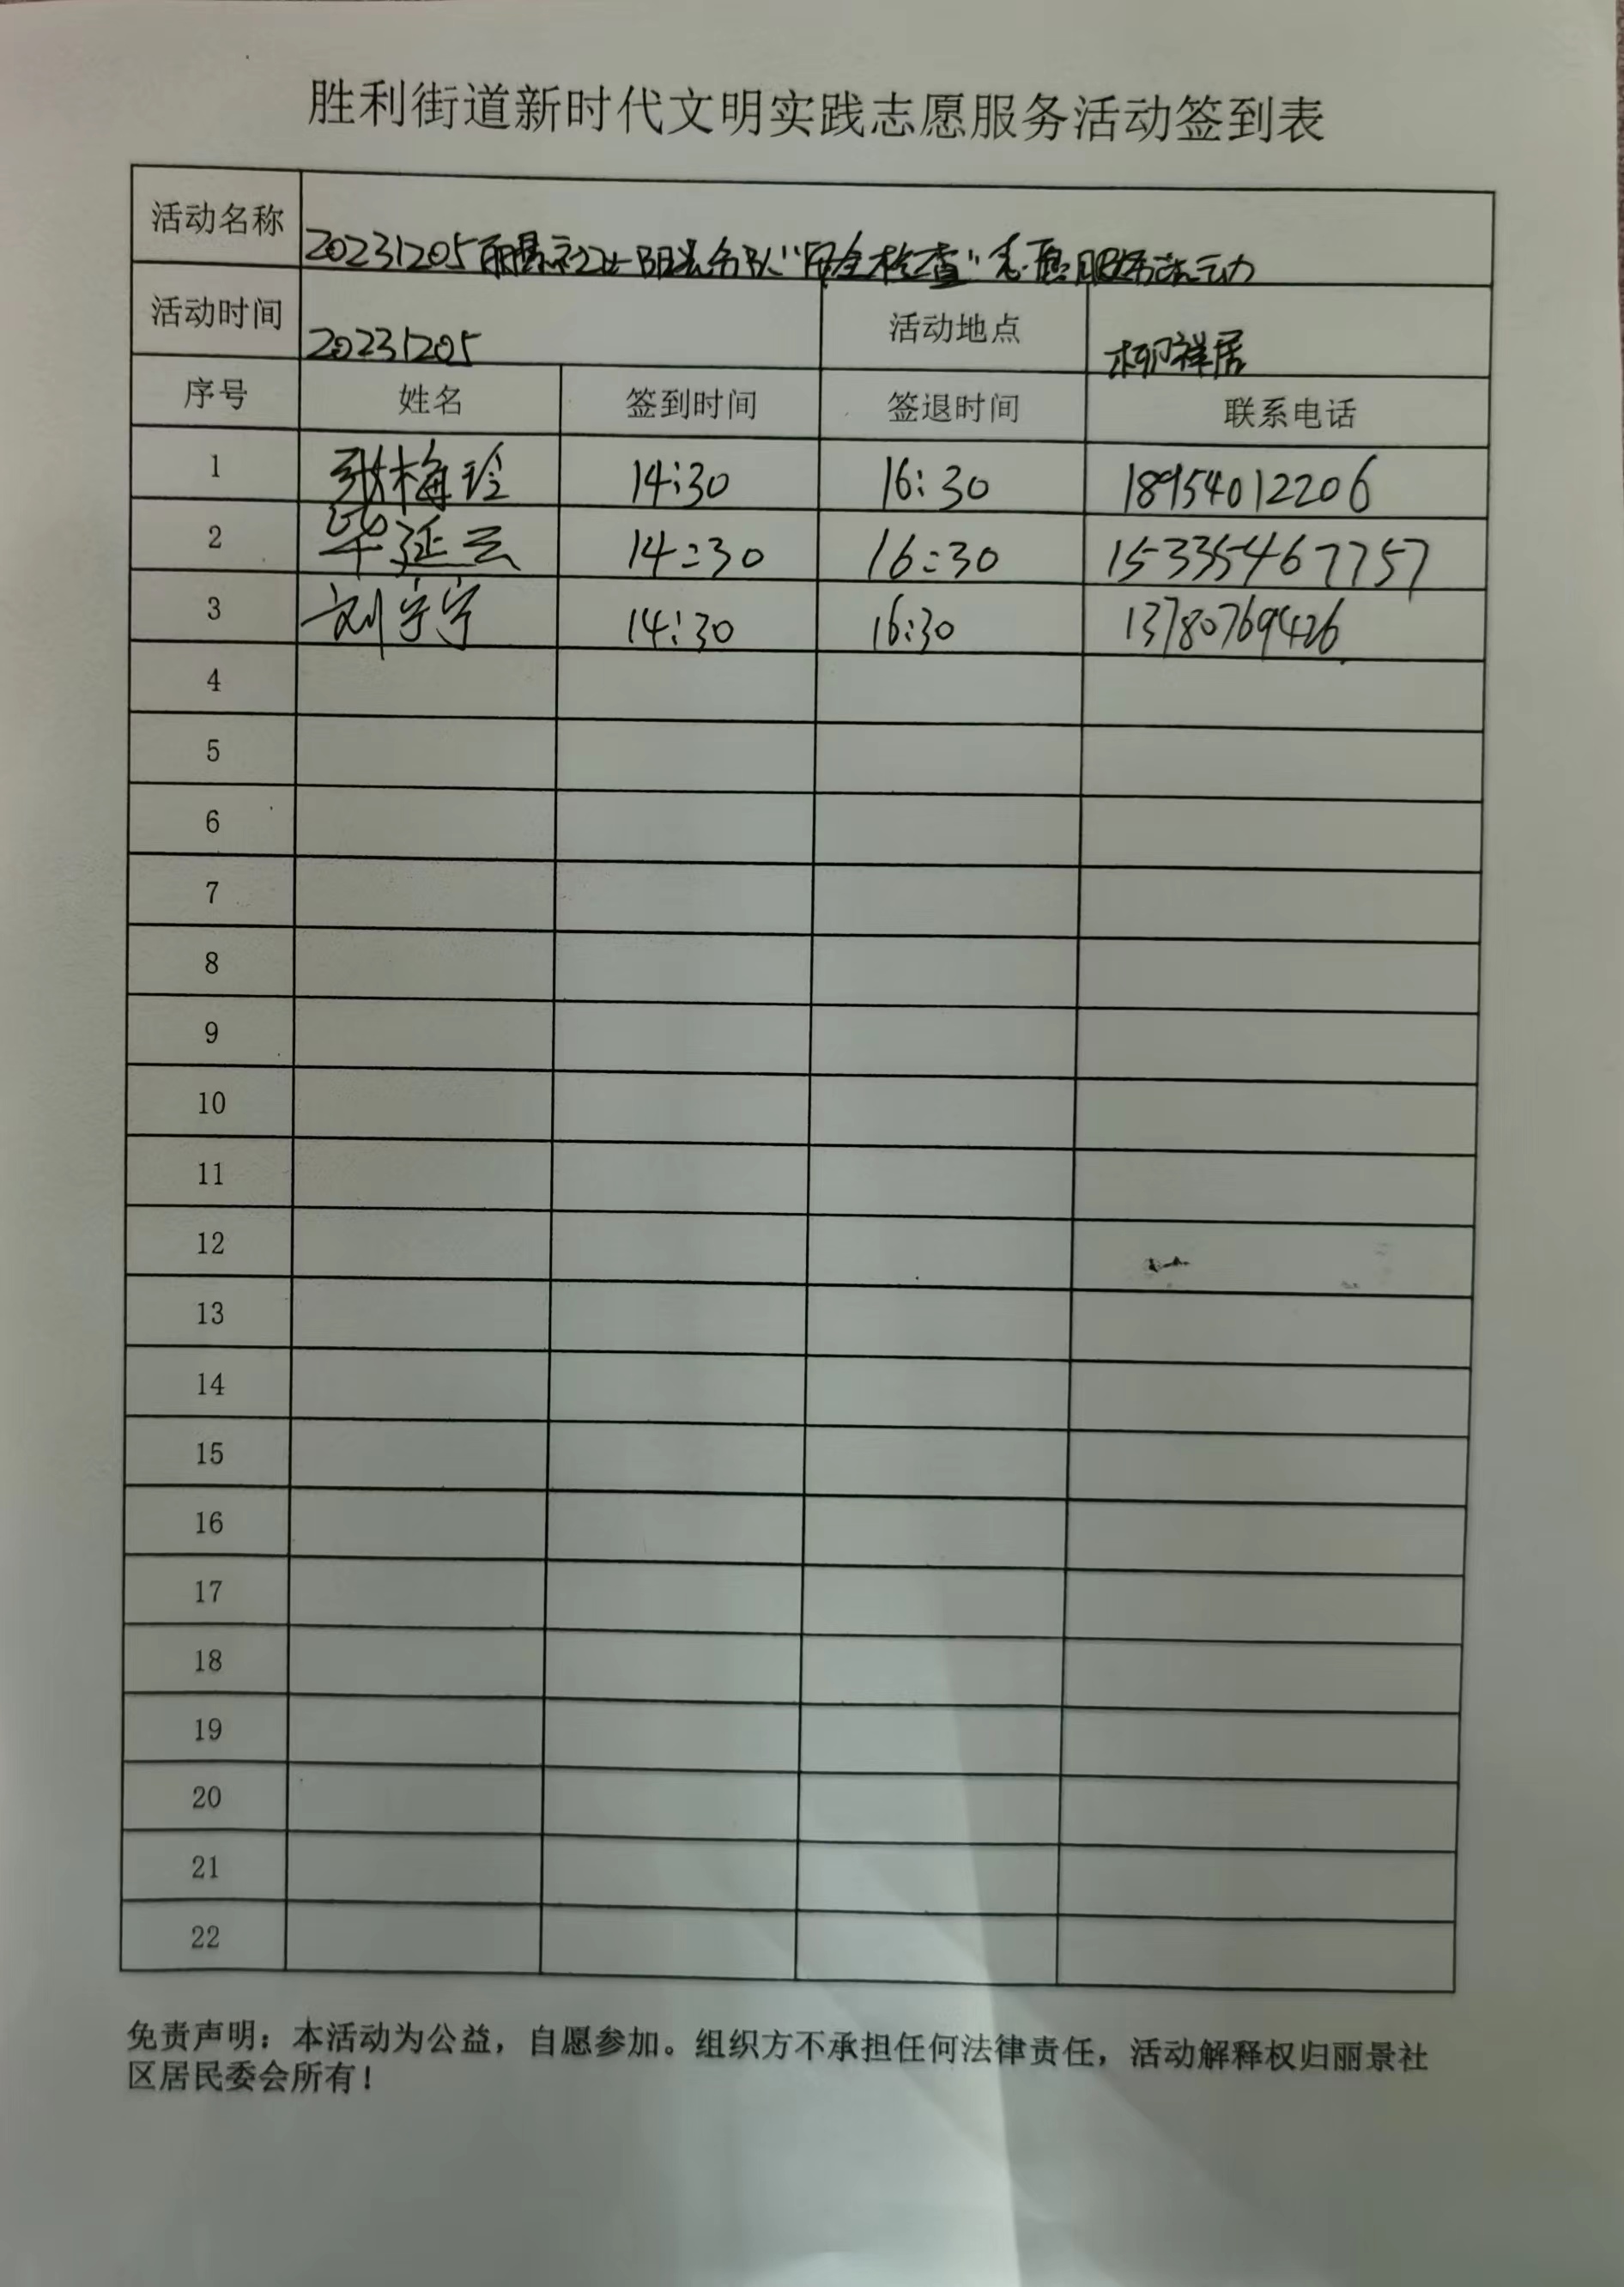 胜利街道新时代文明实践志愿服务活动签到表
活动名称 20231205丽景社区阳光分队"安全检查"志愿服务活动
活动时间 20231205 活动地点 柳祥居
序号 姓名 签到时间 签退时间 联系电话
1 张梅玲 14:30 16:30 18954012206
2 毕延云 14:30 16:30 15335467757
3 刘宁宁 14:30 16:30 13780769426
4
5
6
7
8
9
10
11
12
13
14
15
16
17
18
19
20
21
22
免责声明：本活动为公益，自愿参加。组织方不承担任何法律责任，活动解释权归丽景社
区居民委会所有！